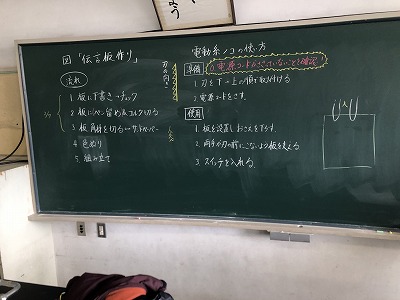 よう
図「伝言板作り」
流れ
1 板に下書き→チェック
2 板にペン、留め具、コルク切る
3 板、角材を切る→サンドペーパー
4 色ぬり
5 組み立て
3/4
刃の向き
電動糸ノコの使い方
準備
電源コードがささっていないことを確認!
1. 刃を下→上の順で取り付ける
2. 電源コードをさす。
使用
1. 板を設置しおさえを下ろす。
2. 両手が刃の前にこないよう板を支える
3. スイッチを入れる。